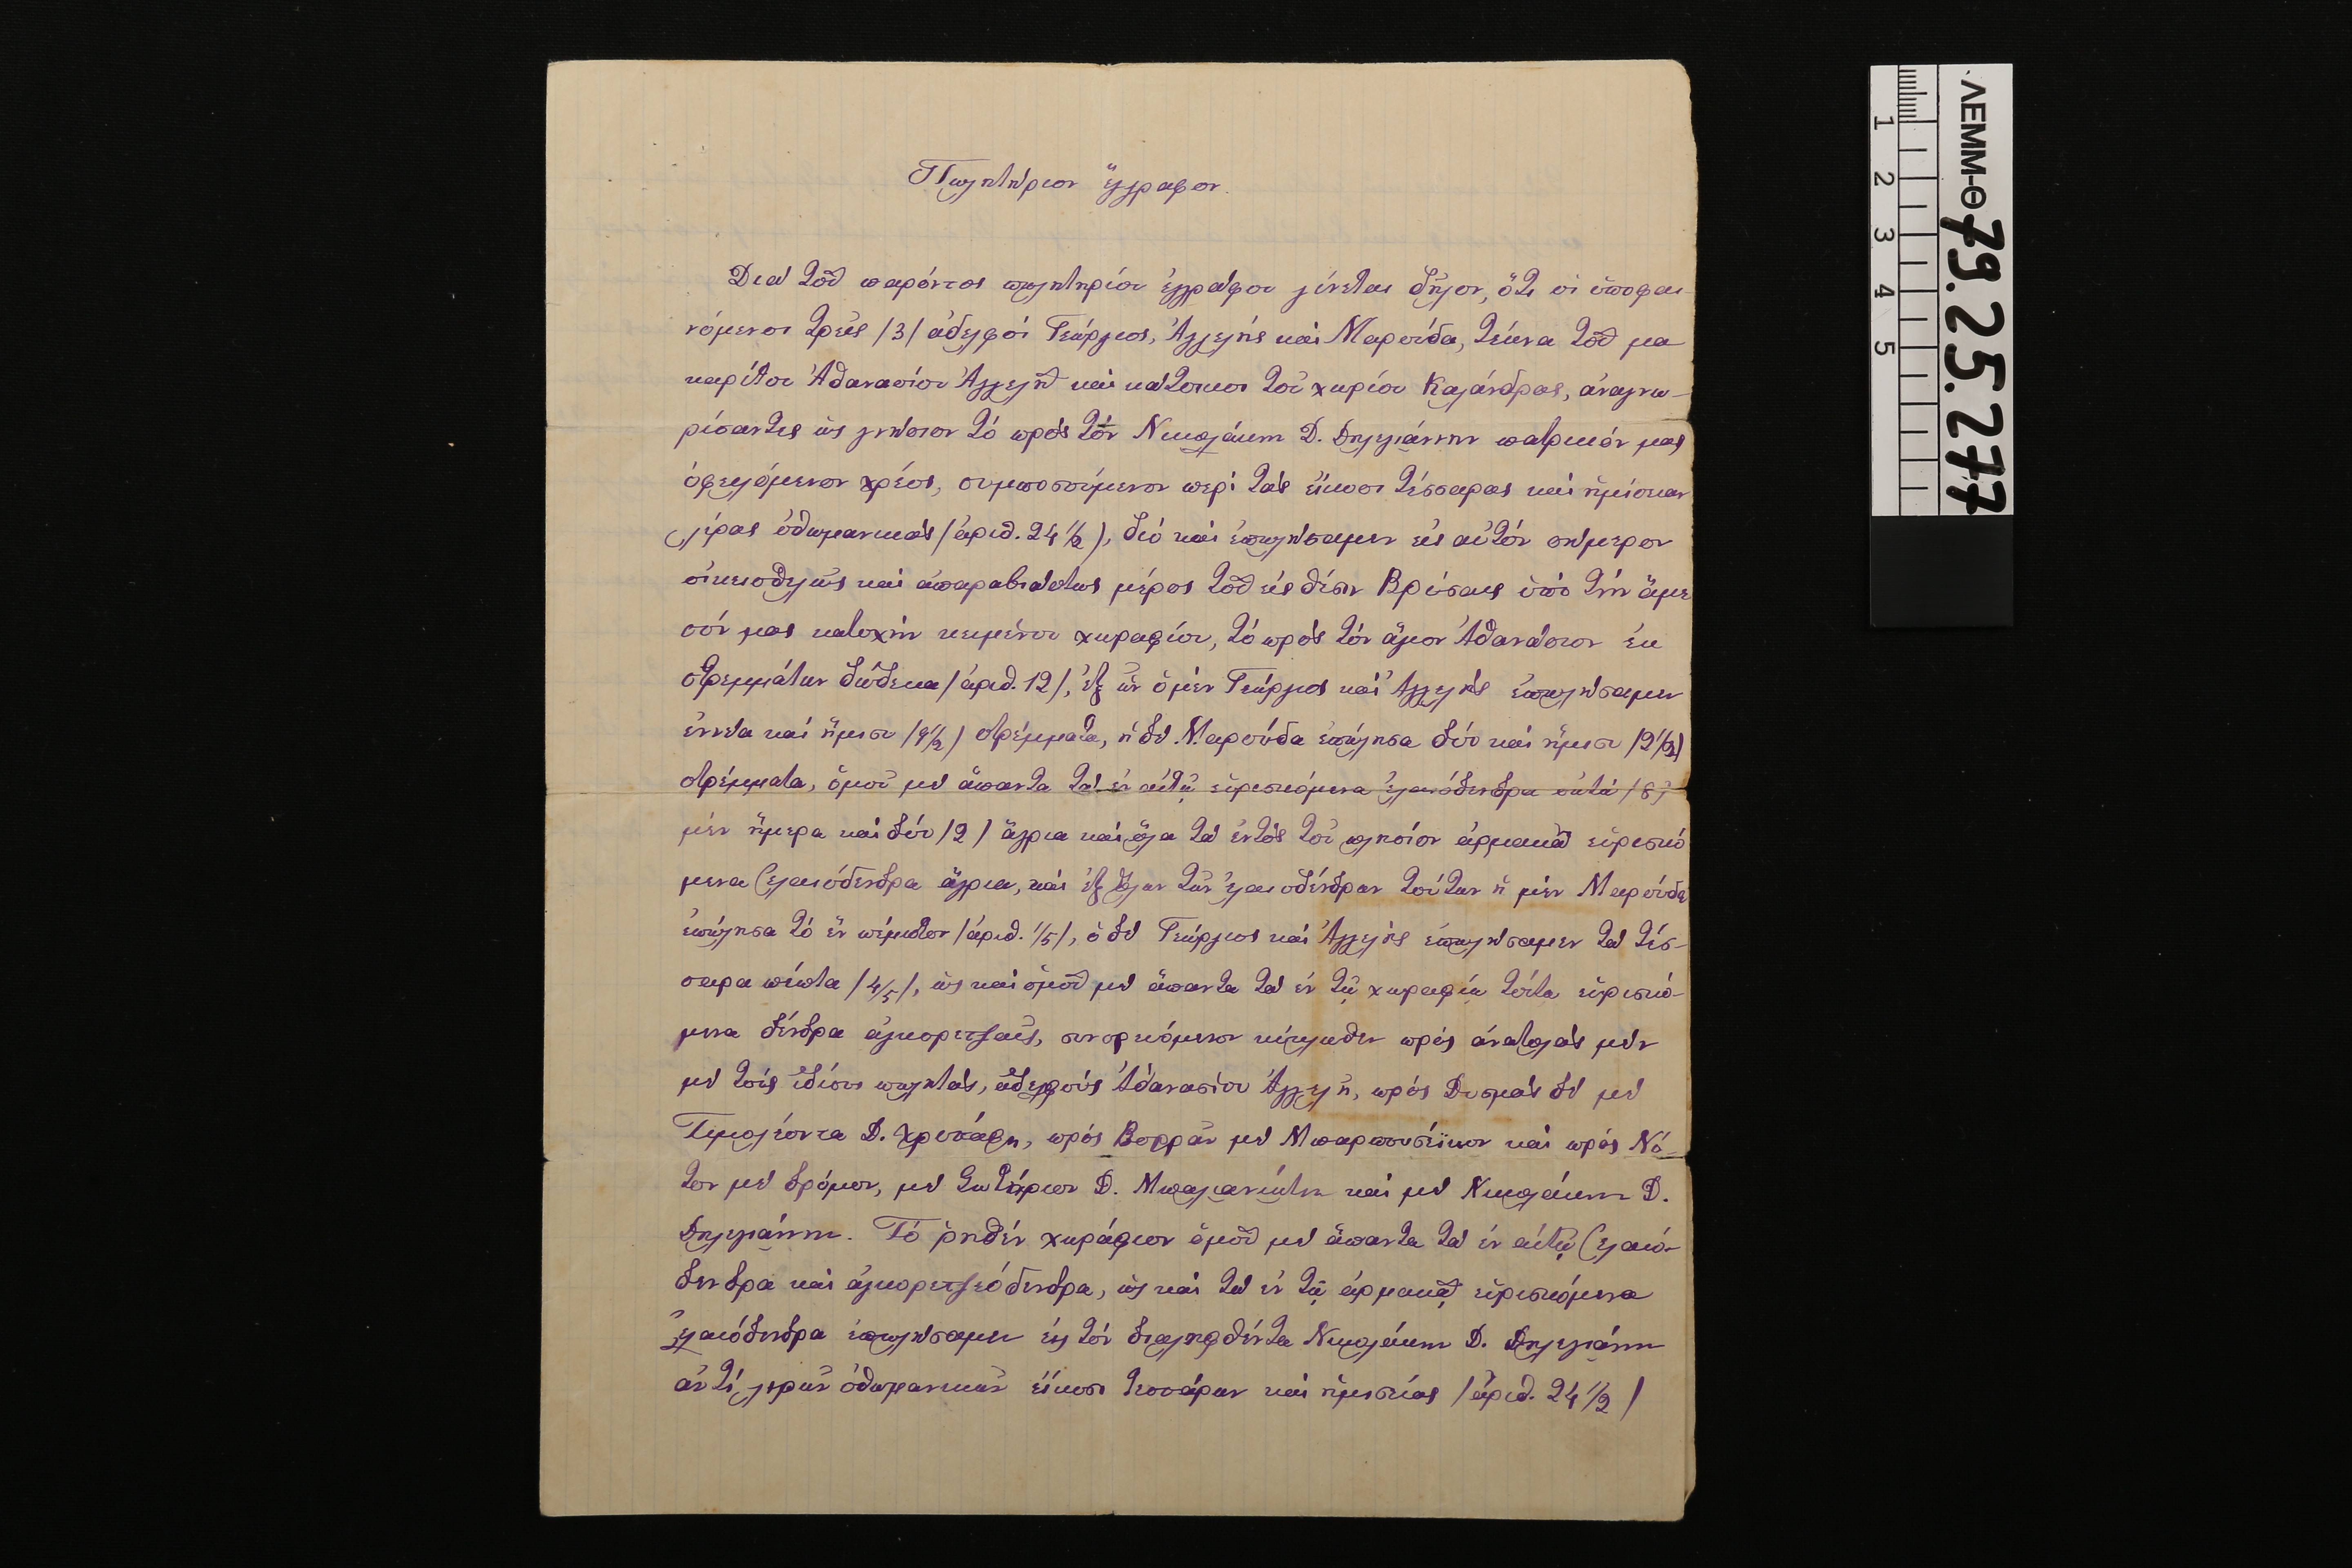 Πωλητήριον ἔγγραφον.
Διὰ τοῦ παρόντος πωλητηρίου ἐγγράφου γίνεται δῆλον, ὅτι οἱ ὑποφαι-
νόμενοι τρεῖς /3/ ἀδελφοί Γεώργιος, Ἀγγελής καὶ Μαρούδα, τέκνα τοῦ μα
καρίτου Ἀθανασίου Ἀγγελῆ καὶ κάτοικοι τοῦ χωρίου Καλάνδρας, ἀναγνω-
ρίσαντες ὡς γνήσιον τό πρός τόν Νικολάκην Δ. Δηλγιάννην πατρικόν μας
ὀφειλόμενον χρέος, συμποσούμενον περί τάς εἴκοσι τέσσαρας καὶ ἡμίσειαν
λίρας ὀθωμανικάς /ἀριθ. 24 1/2/, διό καὶ ἐπωλήσαμεν εἰς αὐτόν σήμερον
οἰκειοθελῶς καὶ ἀπαραβιάστως μέρος τοῦ εἰς θέσιν Βρύσαις ὑπό τήν ἄμε
σόν μας κατοχήν κειμένου χωραφίου, τό πρός τόν ἅγιον Ἀθανάσιον ἐκ
στρεμμάτων δώδεκα /ἀριθ. 12/, ἐξ ὧν ὁ μέν Γεώργιος καὶ Ἀγγελής ἐπωλήσαμεν
ἐννέα καὶ ἥμισυ /9 1/2/ στρέμματα, ἡ δέ Μαρούδα ἐπώλησα δύο καὶ ἥμισυ /2 1/2/
στρέμματα, ὁμοῦ μέ ἅπαντα τά ἐν αὐτῷ εὑρισκόμενα ἐλαιόδενδρα ὀκτώ /8/
μέν ἥμερα καὶ δύο /2/ ἄγρια καὶ ὅλα τά ἐντός τοῦ πλησίον ἁρμακᾶ εὑρισκό
μενα ἐλαιόδενδρα ἄγρια, καὶ ἐξ ὅλων τῶν ἐλαιοδένδρων τούτων ἡ μέν Μαρούδα
ἐπώλησα τό ἕν πέμπτον /ἀριθ. 1/5/, ὁ δέ Γεώργιος καὶ Ἀγγελής ἐπωλήσαμεν τά τέσ-
σαρα πέμπτα /4/5/, ὡς καὶ ὁμοῦ μέ ἅπαντα τά ἐν τῷ χωραφίῳ τούτῳ εὑρισκό-
μενα δένδρα ἀγκορετζαῖς, συνορευόμενον κύκλωθεν πρός ἀνατολάς μέν
μέ τούς ἰδίους πωλητάς, ἀδελφούς Ἀθανασίου Ἀγγελῆ, πρός Δυσμάς δέ μέ
Τιμολέοντα Δ. Χρυσάφη, πρός Βορρᾶν μέ Μπαρπουσέϊκον καὶ πρός Νό-
τον μέ δρόμον, μέ Σωτήριον Δ. καὶ μέ Νικολάκην Δ.
Δηλγιάννην. Τό ῥηθέν χωράφιον ὁμοῦ μέ ἅπαντα τά ἐν αὐτῷ ἐλαιό-
δενδρα καὶ ἀγκορετζεόδενδρα, ὡς καὶ τά ἐν τῷ ἁρμακᾷ εὑρισκόμενα
ἐλαιόδενδρα ἐπωλήσαμεν εἰς τόν διαληφθέντα Νικολάκην Δ. Δηλγιάννην
ἀντί λιρῶν ὀθωμανικῶν εἴκοσι τεσσάρων καὶ ἡμισείας /ἀριθ. 24 1/2/
ΛΕΜΜ-Θ 79.25.277
1
2
3
4
5